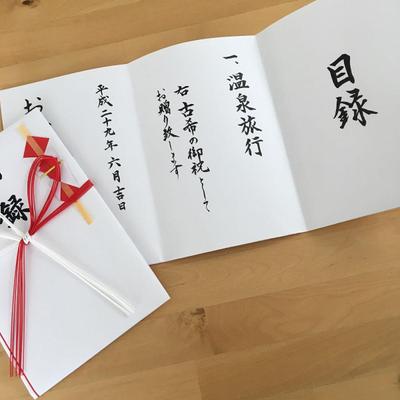 目録
一、温泉旅行
右 古希の御祝として
お贈り致します
平成二十九年 六月吉日
お
録